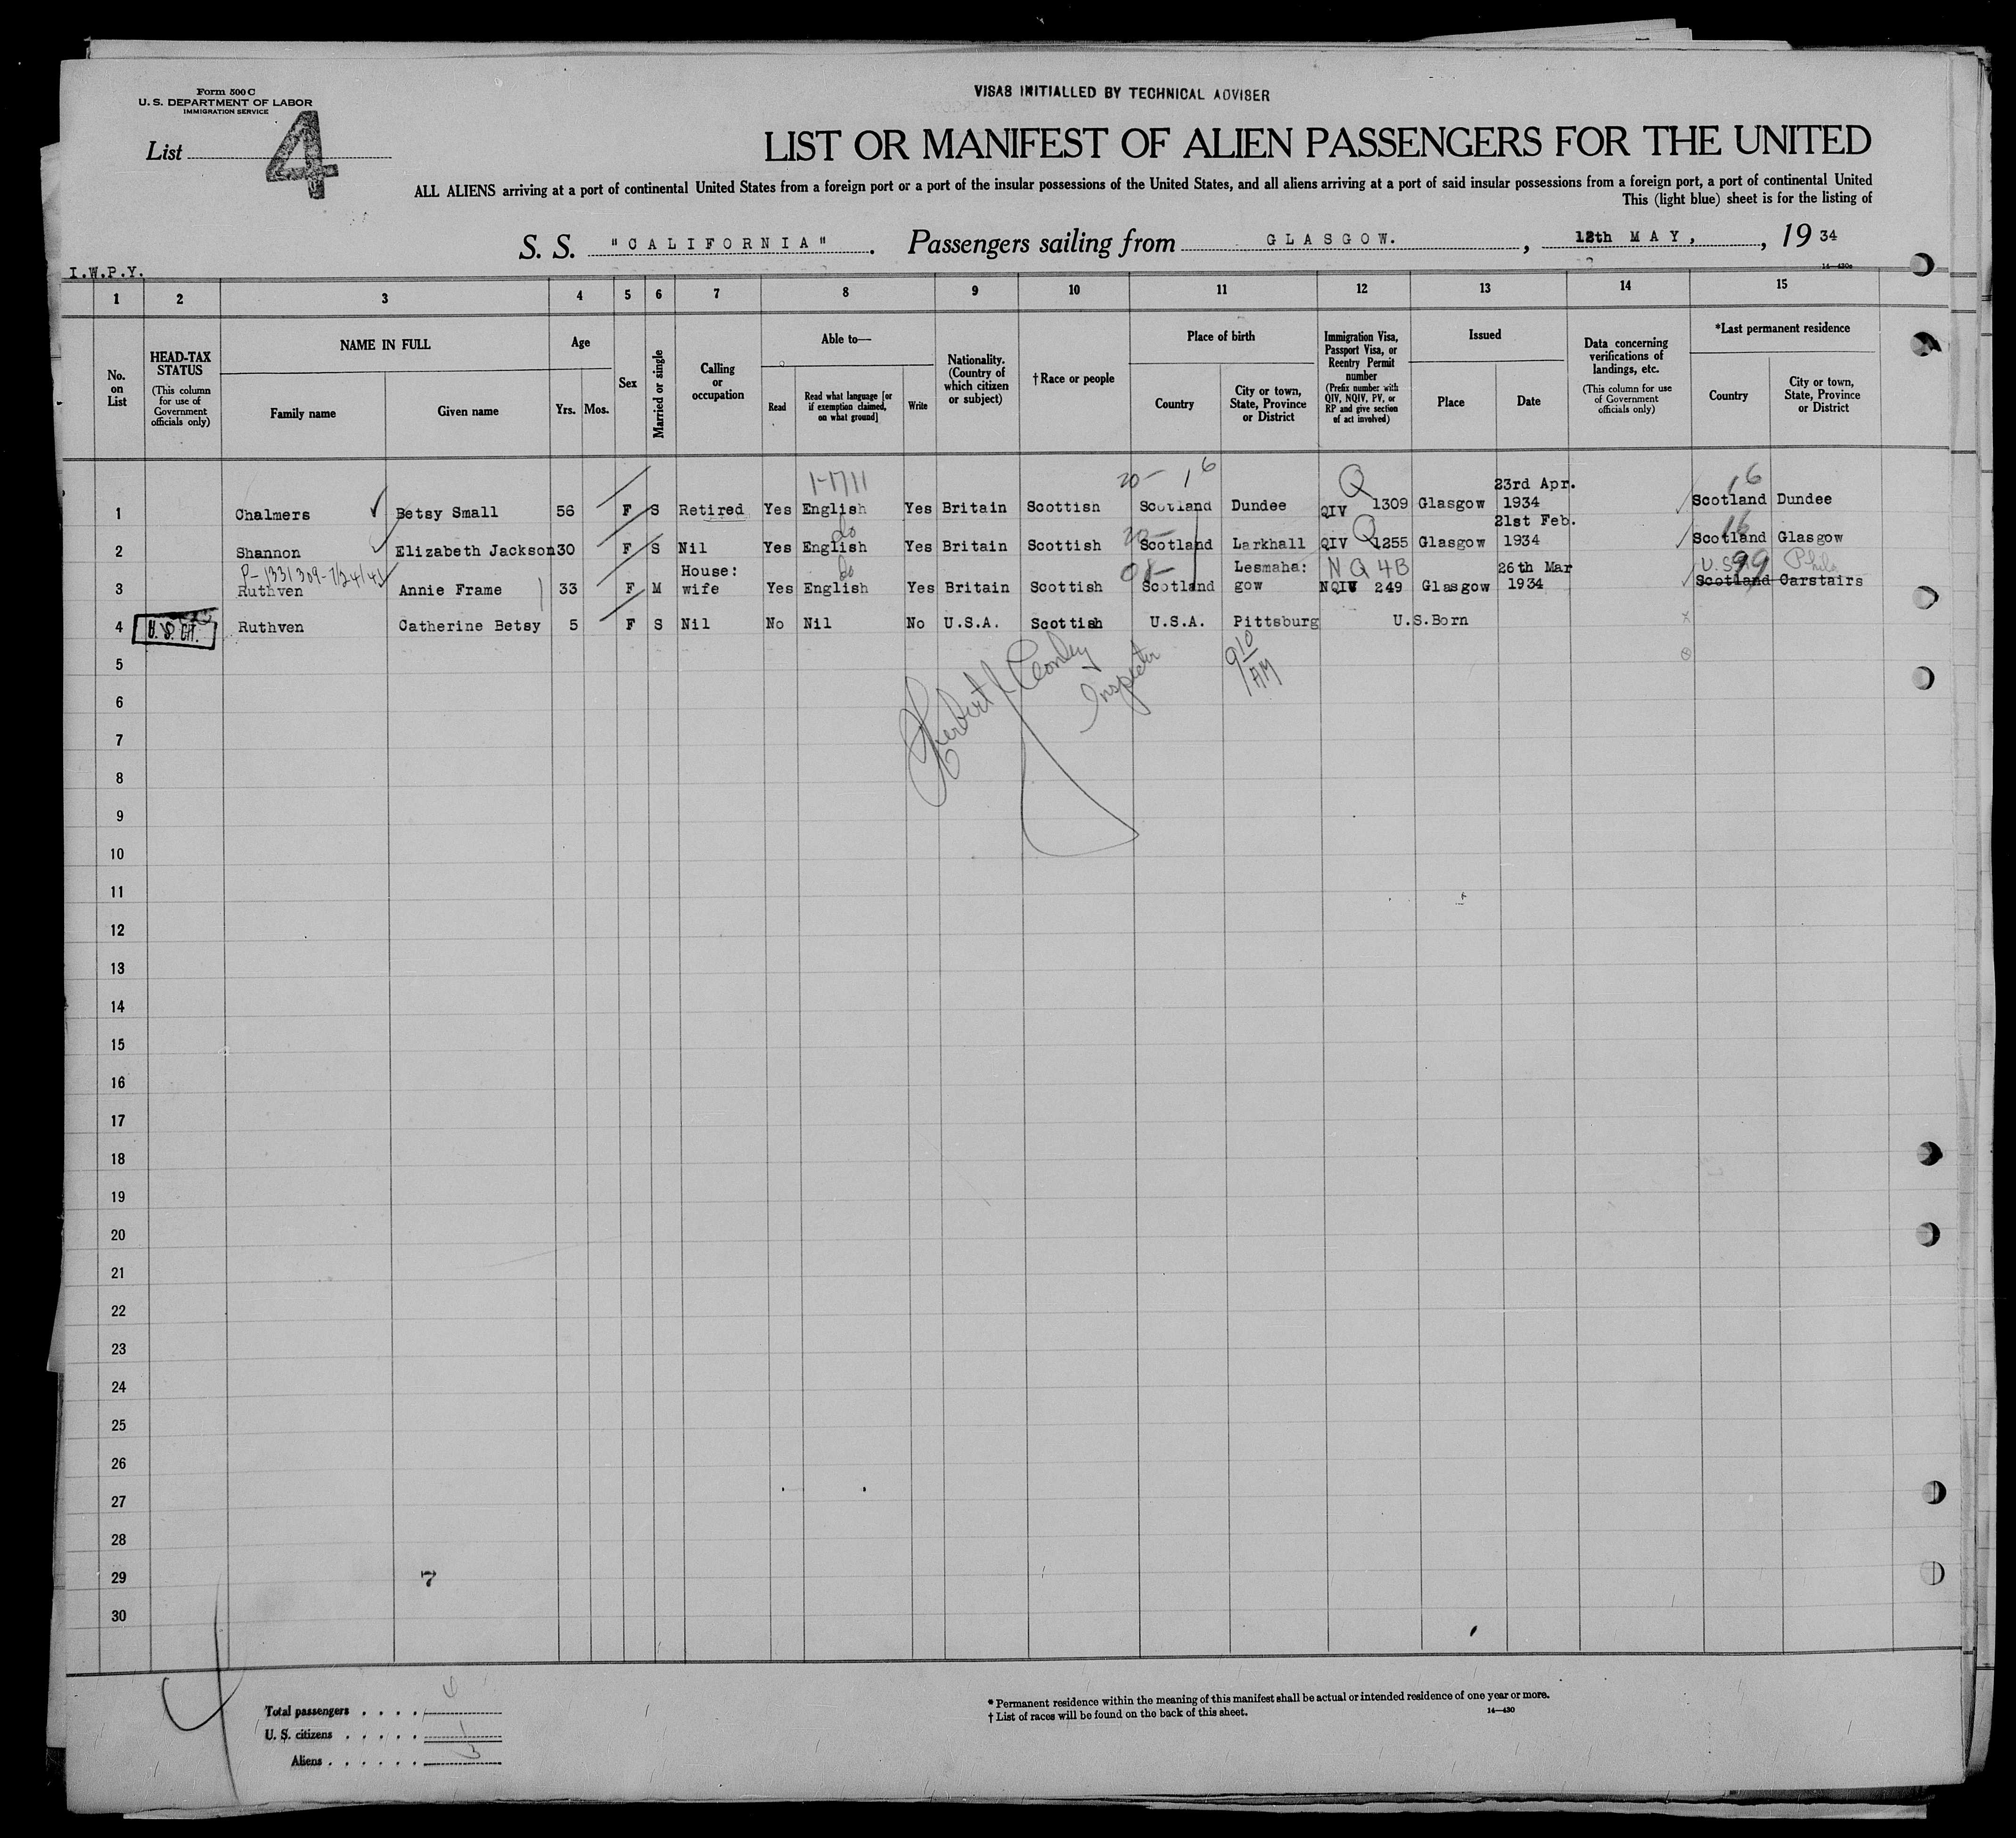 Form 500 C
U. S. DEPARTMENT OF LABOR
IMMIGRATION SERVICE
VISAS INITIALLED BY TECHNICAL ADVISER
List 4
LIST OR MANIFEST OF ALIEN PASSENGERS FOR THE UNITED
ALL ALIENS arriving at a port of continental United States from a foreign port or a port of the insular possessions of the United States, and all aliens arriving at a port of said insular possessions from a foreign port, a port of continental United
This (light blue) sheet is for the listing of
S. S. "CALIFORNIA". Passengers sailing from GLASGOW. , 12th MAY, , 19 34
I.W.P.Y.
1 2 3 4 5 6 7 8 9 10 11 12 13 14 15
No. on List
HEAD-TAX STATUS (This column for use of Government officials only)
NAME IN FULL
Family name
Given name
Age
Yrs. Mos.
Sex
Married or single
Calling or occupation
Able to—
Read
Read what language [or if exemption claimed, on what ground]
Write
Nationality. (Country of which citizen or subject)
†Race or people
Place of birth
Country
City or town, State, Province or District
Immigration Visa, Passport Visa, or Reentry Permit number (Prefix number with QIV, NQIV, PV, or RP and give section of act involved)
Issued
Place
Date
Data concerning verifications of landings, etc. (This column for use of Government officials only)
*Last permanent residence
Country
City or town, State, Province or District
1-1711 20- 16 Q 23rd Apr. 16
1 Chalmers Betsy Small 56 F S Retired Yes English Yes Britain Scottish Scotland Dundee QIV 1309 Glasgow 1934 Scotland Dundee
do Q 21st Feb. 16
2 Shannon Elizabeth Jackson 30 F S Nil Yes English Yes Britain Scottish Scotland Larkhall QIV 1255 Glasgow 1934 Scotland Glasgow
P-1331309-7/24/41 House: do 08- Lesmaha: NQ 4B 26th Mar U.S. 99 Phila
3 Ruthven Annie Frame 33 F M wife Yes English Yes Britain Scottish Scotland gow NQIV 249 Glasgow 1934 Scotland Carstairs
4 U.S. CIT. Ruthven Catherine Betsy 5 F S Nil No Nil No U.S.A. Scottish U.S.A. Pittsburg U.S.Born
5
Inspector
9 10 AM
6
7
8
9
10
11
12
13
14
15
16
17
18
19
20
21
22
23
24
25
26
27
28
29
7
30
Total passengers
U. S. citizens 1
Aliens 3
* Permanent residence within the meaning of this manifest shall be actual or intended residence of one year or more.
† List of races will be found on the back of this sheet.
14—430